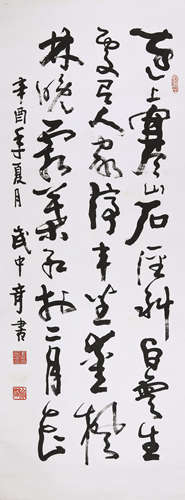 遠上寒山石徑斜白雲生
處有人家停車坐愛楓
林晚霜葉紅於二月花
辛酉季夏月 武中奇書